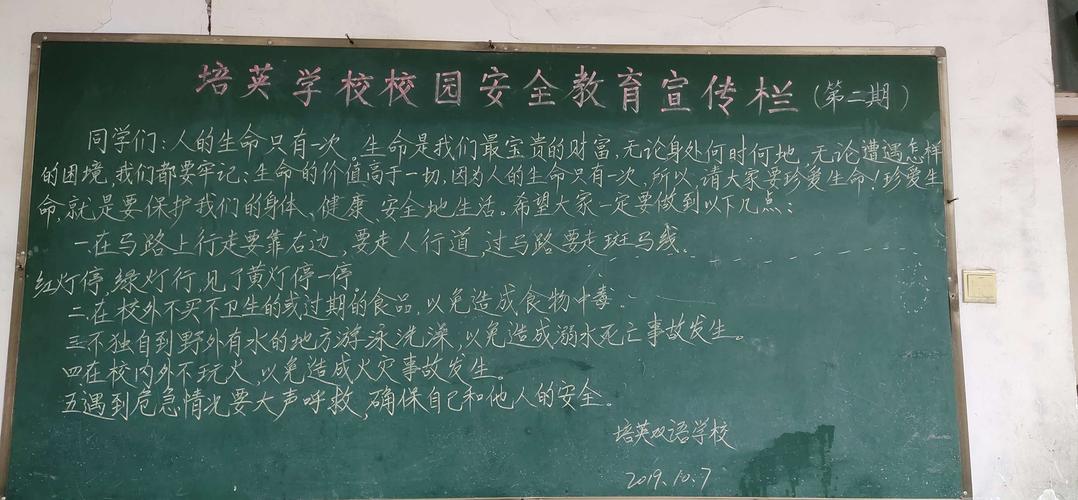 培英学校校园安全教育宣传栏(第二期)
同学们:人的生命只有一次。生命是我们最宝贵的财富,无论身处何时何地,无论遭遇怎样
的困境,我们都要牢记:生命的价值高于一切,因为人的生命只有一次,所以请大家要珍爱生命!珍爱生
命,就是要保护我们的身体、健康、安全地生活。希望大家一定要做到以下几点:
一在马路上行走要靠右边,要走人行道,过马路要走斑马线.
红灯停,绿灯行,见了黄灯停一停。
二在校外不买不卫生的或过期的食品,以免造成食物中毒.
三不独自到野外有水的地方游泳洗澡,以免造成溺水死亡事故发生。
四在校内外不玩火,以免造成火灾事故发生。
五遇到危急情况要大声呼救,确保自己和他人的安全。
培英双语学校
2019.10.7